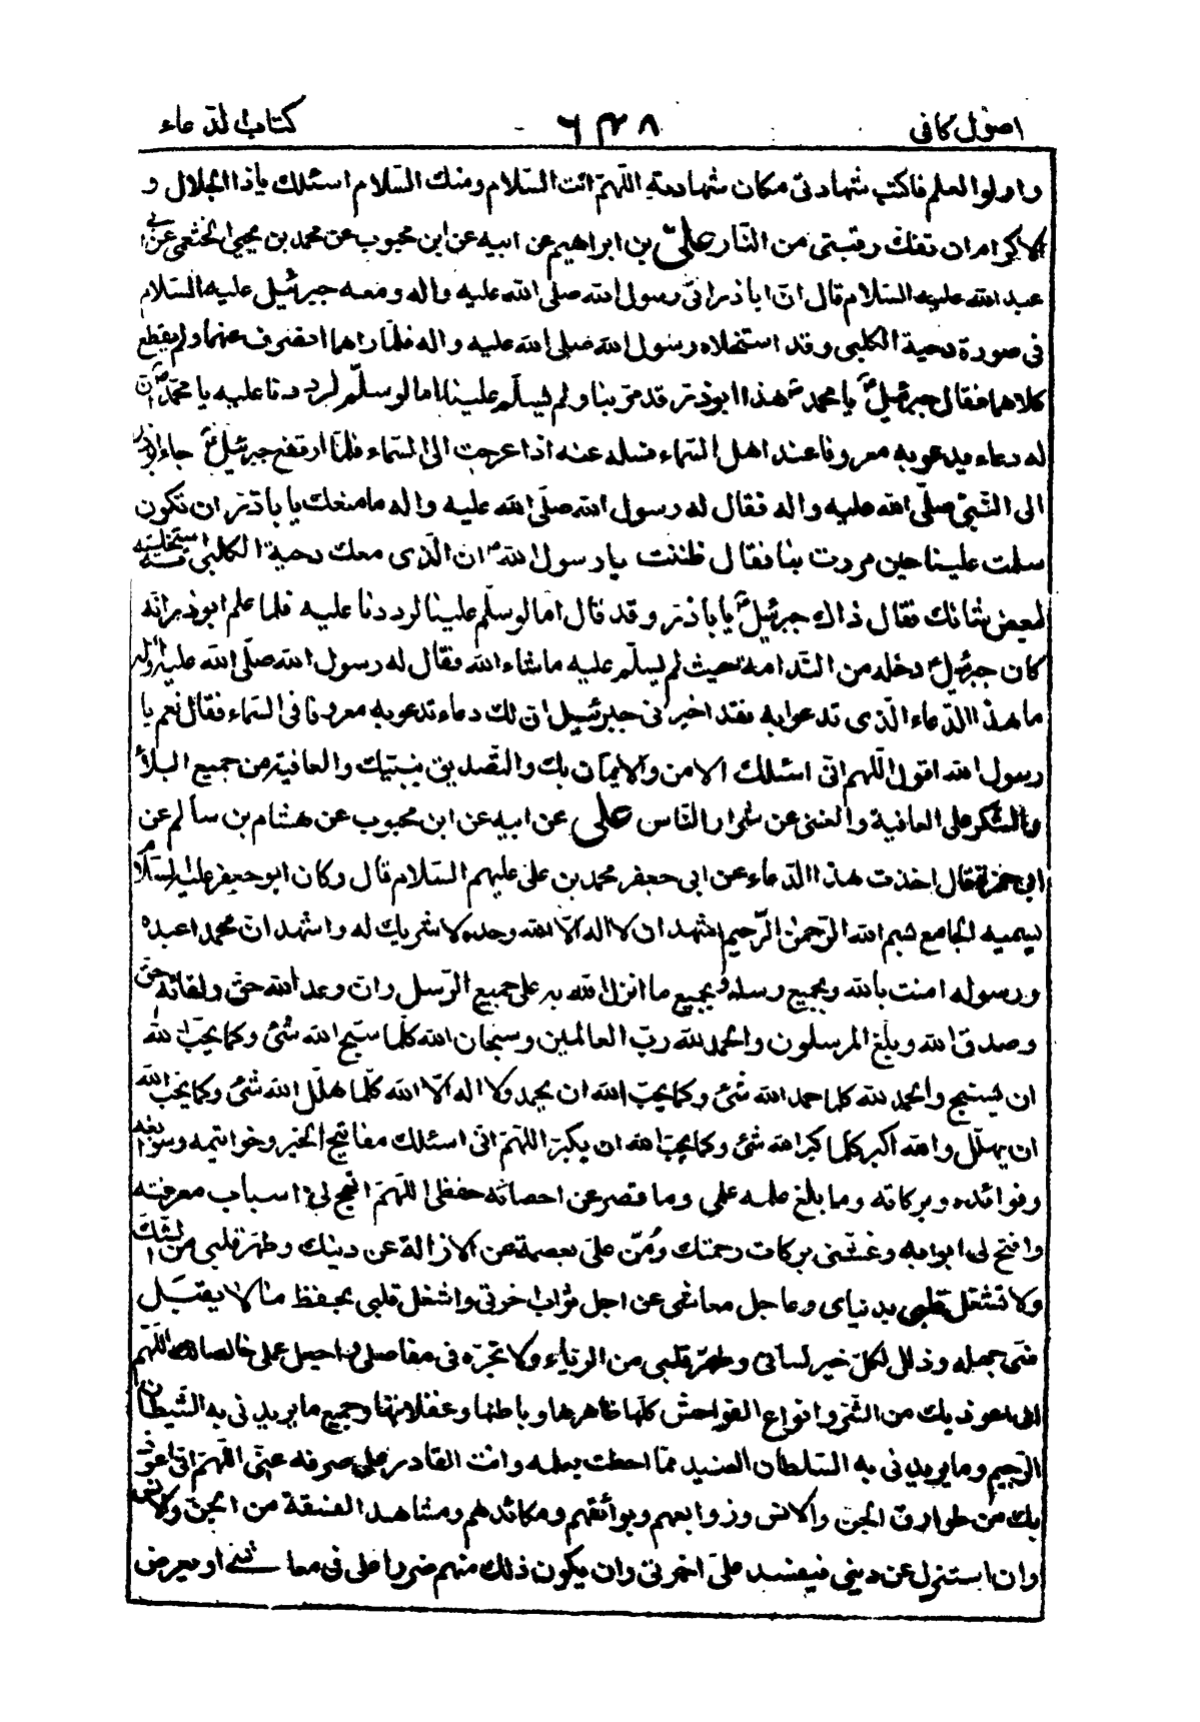 اصول كافى ٦٣٨ كتاب الدعاء
و اولوا العلم فاكتب شهادتى مكان شهادته اللّهمّ انت السّلام ومنك السّلام اسئلك ياذا الجلال و
الاكرام ان تفك رقبتى من النّار علىّ بن ابراهيم عن ابيه عن ابن محبوب عن محمد بن يحيى الخثعمى عن ابى
عبد الله عليه السّلام قال انّ اباذر اتى رسول الله صلّى الله عليه واله ومعه جبرئيل عليه السّلام
فى صورة دحية الكلبى وقد استخلاه رسول الله صلى الله عليه واله فلمّا راهما انصرف عنهما ولم يقطع
كلامهما فقال جبرئيل يا محمد هذا ابوذر قد مرّ بنا ولم يسلّم علينا اما لو سلّم لرددنا عليه يا محمّد انّ
له دعاء يدعو به معروفا عند اهل السّماء فسله عنه اذا عرجت الى السّماء فلمّا ارتفع جبرئيل جاء ابوذر
الى النّبىّ صلّى الله عليه واله فقال له رسول الله صلّى الله عليه واله ما منعك يا باذر ان تكون
سلمت علينا حين مررت بنا فقال ظننت يا رسول الله ان الّذى معك دحية الكلبى استخليته
لبعض شانك فقال ذاك جبرئيل يا باذر وقد قال اما لو سلّم علينا لرددنا عليه فلما علم ابوذر انّه
كان جبرئيل دخله من النّدامة حيث لم يسلّم عليه ماشاء الله فقال له رسول الله صلّى الله عليه واله
ما هذا الدّعاء الّذى تدعوا به فقد اخبرنى جبرئيل ان لك دعاء تدعو به معروفا فى السّماء فقال نعم يا
رسول الله اقول اللّهم انى اسئلك الامن والايمان بك والتّصديق بنبيّك والعافية من جميع البلاء
والشكر على العافية والغنى عن شرار النّاس على عن ابيه عن ابن محبوب عن هشام بن سالم عن
ابى حمزة قال اخذت هذا الدّعاء عن ابى جعفر محمد بن على عليهم السّلام قال وكان ابو جعفر عليه السّلام
يسميه الجامع بسم الله الرّحمن الرّحيم اشهد ان لا اله الّا الله وحده لا شريك له واشهد انّ محمدا عبده
ورسوله امنت بالله وبجميع رسله وبجميع ما انزل الله به على جميع الرّسل وانّ وعد الله حق ولقائه حق
وصدق الله وبلّغ المرسلون والحمد لله ربّ العالمين وسبحان الله كلّما سبّح الله شئ وكما يحبّ الله
ان يسبّح والحمد لله كلما حمد الله شئ وكما يحبّ الله ان يحمد ولا اله الّا الله كلّما هلّل الله شئ وكما يحبّ الله
ان يهلّل والله اكبر كلما كبر الله شئ وكما يحبّ الله ان يكبّر اللّهمّ انى اسئلك مفاتيح الخير وخواتيمه وسوابغه
وفوائده وبركاته وما بلغ علمه علمى وما قصر عن احصائه حفظى اللّهمّ انهج لى اسباب معرفته
وافتح لى ابوابه وغشّنى بركات رحمتك ومُنّ علىّ بعصمة عن الازالة عن دينك وطهّر قلبى من الشّكّ
ولا تشغل قلبى بدنياى وعاجل معاشى عن اجل ثواب اخرتى واشغل قلبى بحفظ ما لا يقبَل
منّى جهله وذلل لكلّ خير لسانى وطهّر قلبى من الرّياء ولا تجره فى مفاصلى واجعل عملى خالصا لك اللّهمّ
انى اعوذ بك من الشّرّ وانواع الفواحش كلّها ظاهرها وباطنها وغفلاتها وجميع ما يريدنى به الشّيطان
الرّجيم وما يريدنى به السّلطان العنيد ممّا احطت بعلمه وانت القادر على صرفه عنّى اللّهمّ انى اعوذ
بك من طوارق الجن والانس وزوابعهم وبوائقهم ومكائدهم ومشاهد الفسقة من الجنّ والانس
وان استزلّ عن دينى فيفسد علىّ اخرتى وان يكون ذلك منهم ضررا على فى معاشى او يعرض